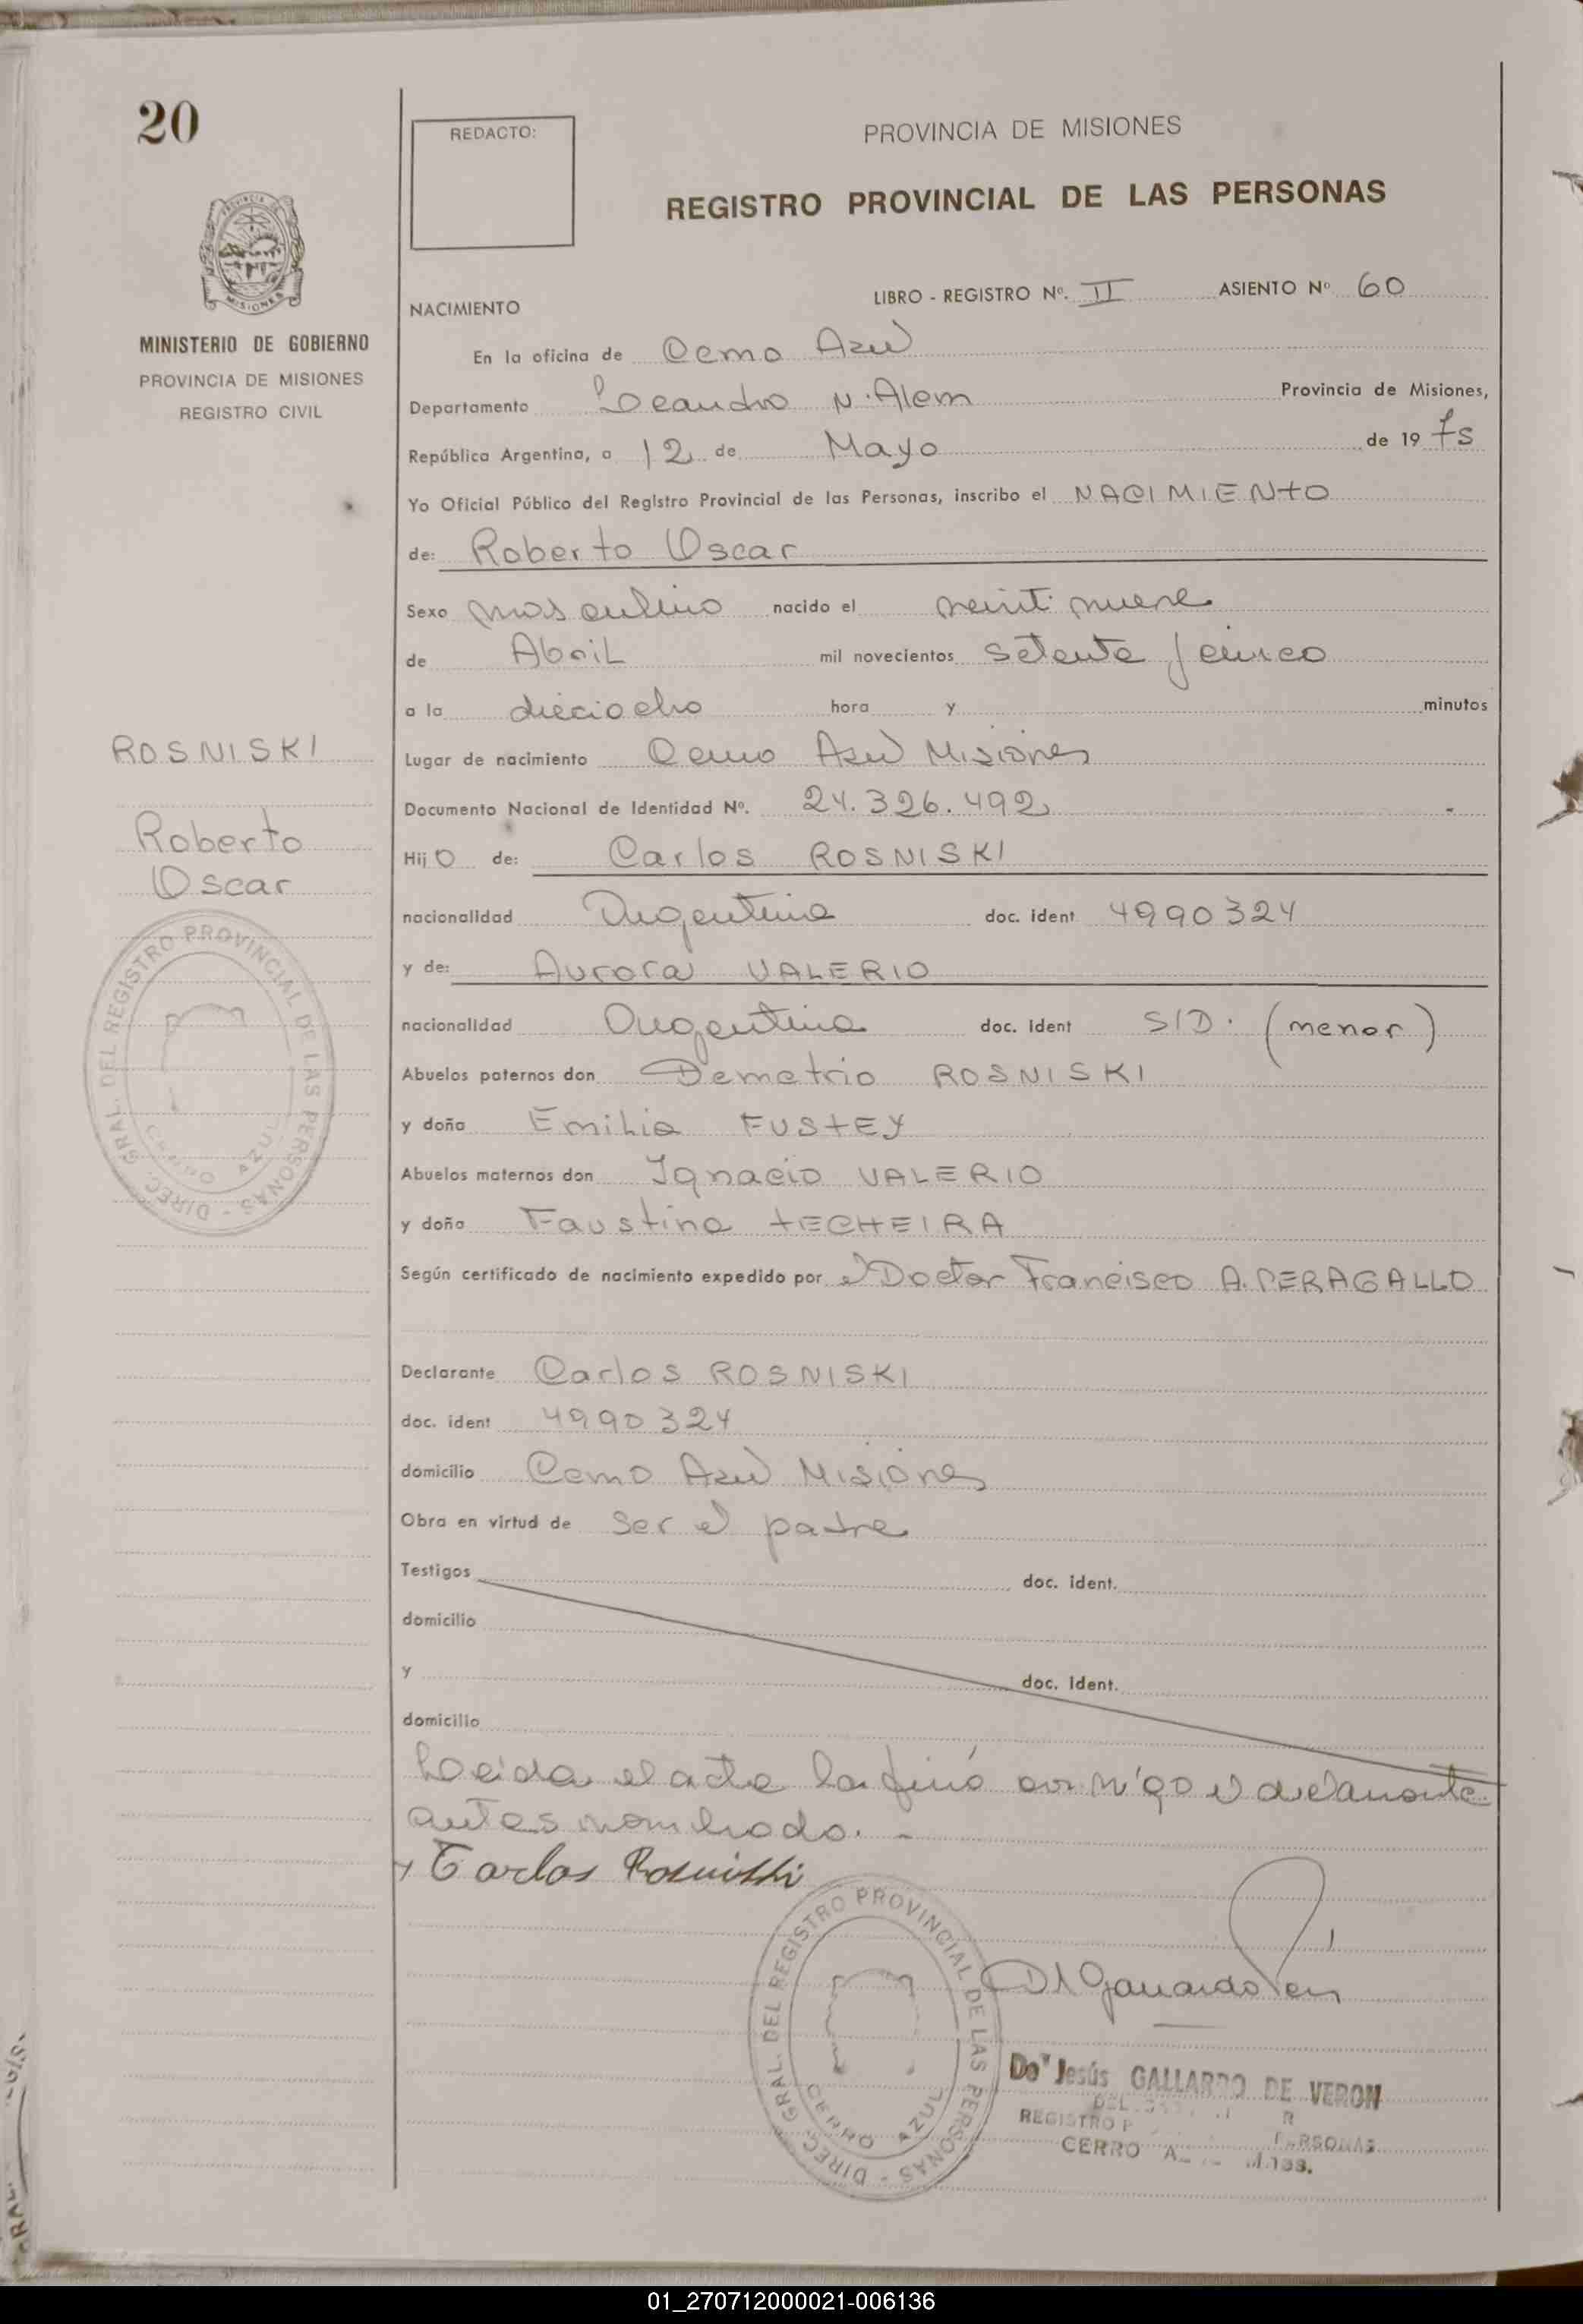 20
REDACTO:
PROVINCIA DE MISIONES
REGISTRO PROVINCIAL DE LAS PERSONAS
MISIONES
MINISTERIO DE GOBIERNO
PROVINCIA DE MISIONES
REGISTRO CIVIL
NACIMIENTO LIBRO - REGISTRO Nº. II ASIENTO Nº 60
En la oficina de Cerro Azul
Departamento Leandro N. Alem Provincia de Misiones,
República Argentina, a 12 de Mayo de 1975
Yo Oficial Público del Registro Provincial de las Personas, inscribo el NACIMIENTO
de: Roberto Oscar
Sexo masculino nacido el veintinueve
de Abril mil novecientos setenta y cinco
a la dieciocho hora y minutos
ROSNISKI
Roberto
Oscar
Lugar de nacimiento Cerro Azul Misiones
Documento Nacional de Identidad Nº. 24.326.492
Hijo de: Carlos ROSNISKI
nacionalidad Argentina doc. ident 4990324
y de: Aurora VALERIO
nacionalidad Argentina doc. ident S/D. (menor)
Abuelos paternos don Demetrio ROSNISKI
y doña Emilia FUSTEY
Abuelos maternos don Ignacio VALERIO
y doña Faustina TECHEIRA
Según certificado de nacimiento expedido por el Doctor Francisco A. PERAGALLO
DIREC. GRAL. DEL REGISTRO PROVINCIAL DE LAS PERSONAS -
CERRO AZUL
Declarante Carlos ROSNISKI
doc. ident 4990324
domicilio Cerro Azul Misiones
Obra en virtud de ser el padre
Testigos doc. ident.
domicilio
y doc. ident.
domicilio
Leida el acta la firmó conmigo el declarante
antes nombrado. -
Carlos Rosniski
DIREC. GRAL. DEL REGISTRO PROVINCIAL DE LAS PERSONAS -
CERRO AZUL
Da Jesús GALLARDO DE VERON
REGISTRO PERSONAS
CERRO
01_270712000021-006136